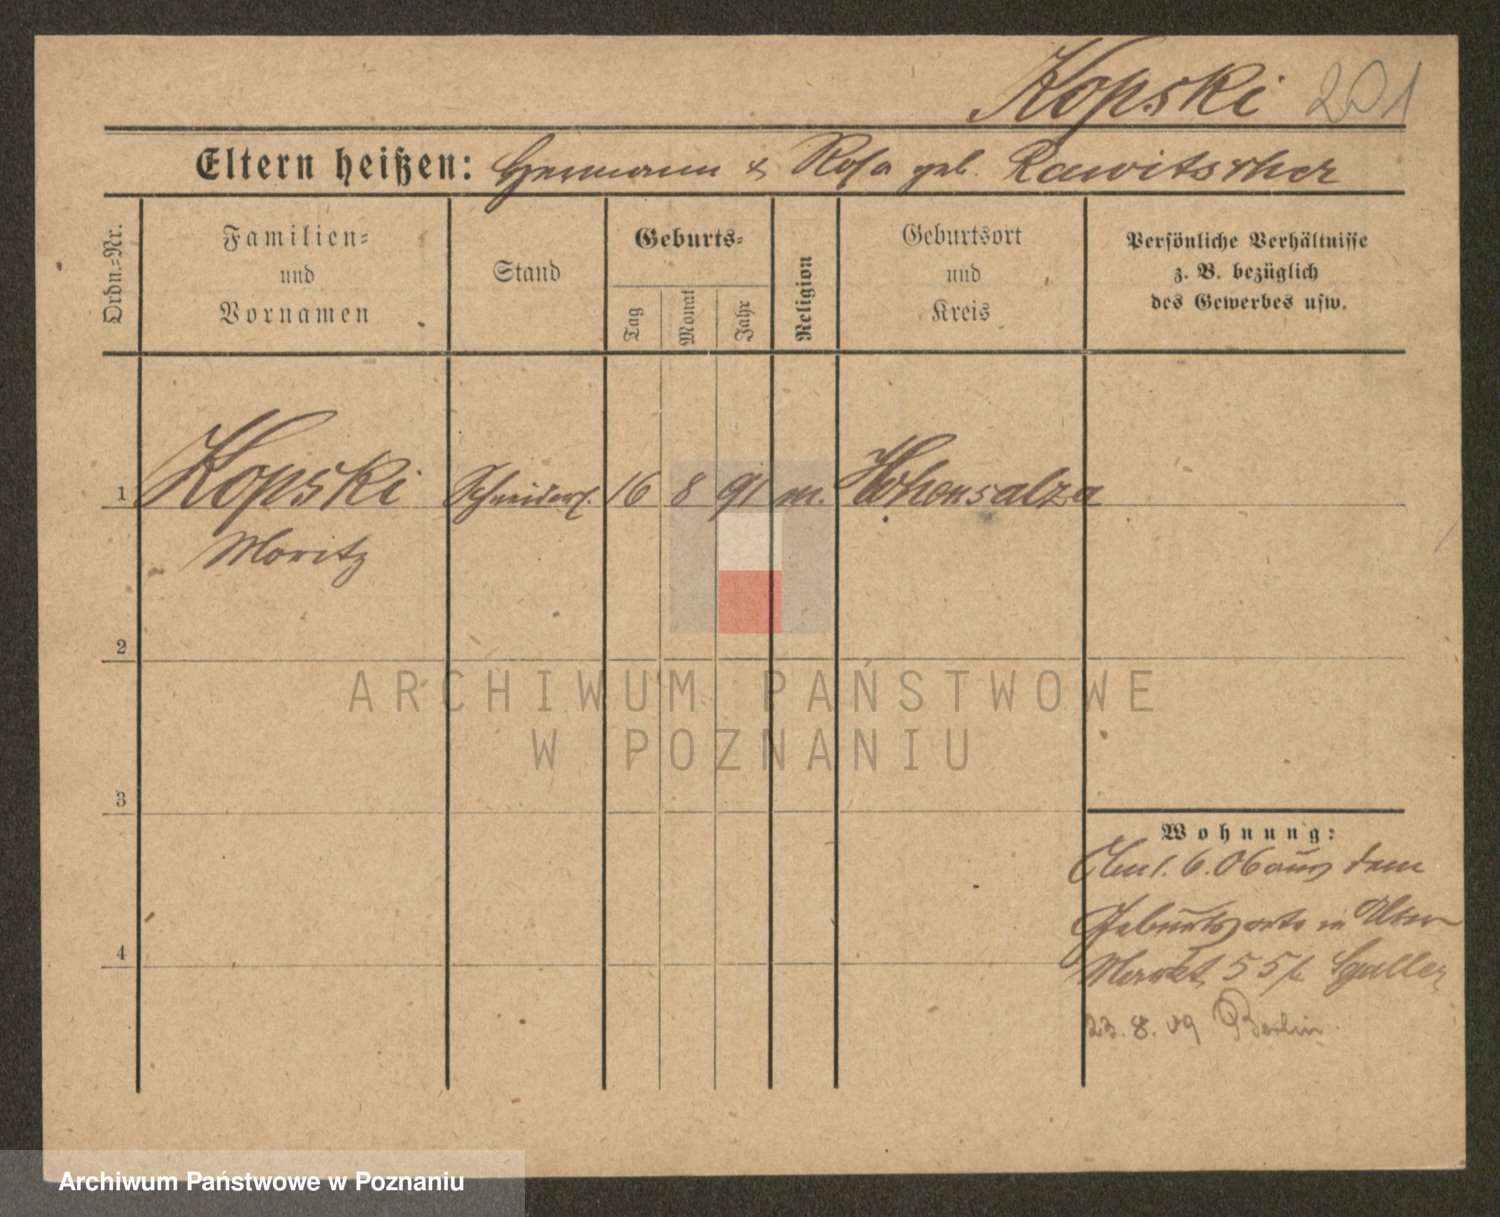 Kopski 201
Eltern heißen: Hermann & Rosa geb. Rawitscher
Ordn.-Nr.
Familien-
und
Vornamen
Stand
Geburts-
Tag
Monat
Jahr
Religion
Geburtsort
und
Kreis
Persönliche Verhältnisse
z. B. bezüglich
des Gewerbes usw.
1 Kopski Schneiderl. 16 8 91 m. Hohensalza
Moritz
2
ARCHIWUM PAŃSTWOWE
W POZNANIU
3
Wohnung:
Am 1. 6. 06 aus dem
Geburtsorte in Alter
Markt 55
4
23. 8. 09 Berlin
Archiwum Państwowe w Poznaniu